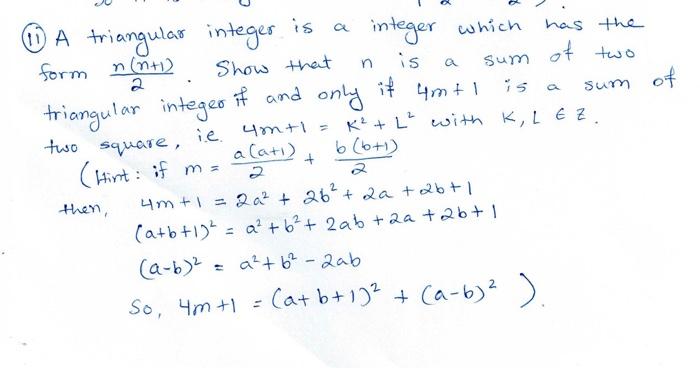 (11) A triangular integer is a integer which has the
form n(n+1)/2 . Show that n is a sum of two
triangular integer if and only if 4m+1 is a sum of
two square, i.e. 4m+1 = K² + L² with K, L ∈ Z.
(Hint: if m = a(a+1)/2 + b(b+1)/2
then, 4m+1 = 2a² + 2b² + 2a + 2b + 1
(a+b+1)² = a² + b² + 2ab + 2a + 2b + 1
(a-b)² = a² + b² - 2ab
So, 4m+1 = (a+b+1)² + (a-b)² ).